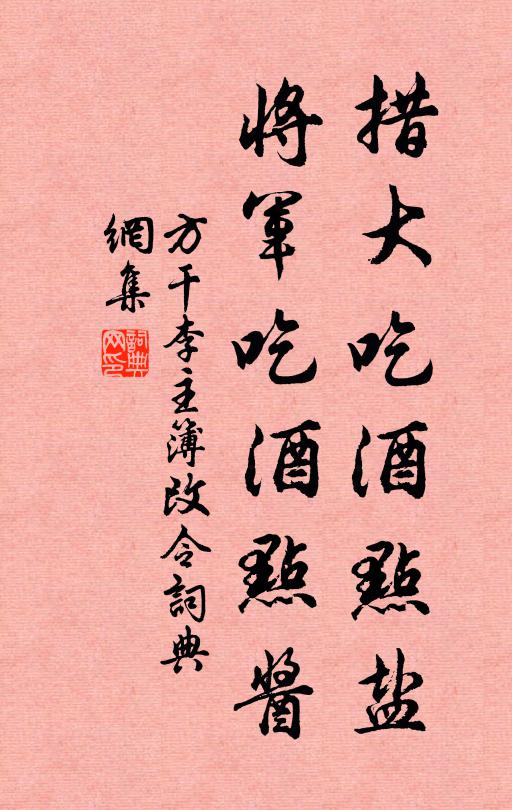 措大吃酒點盐
將軍吃酒點醬
方干李主簿改令詞典
網集
詞典
网印